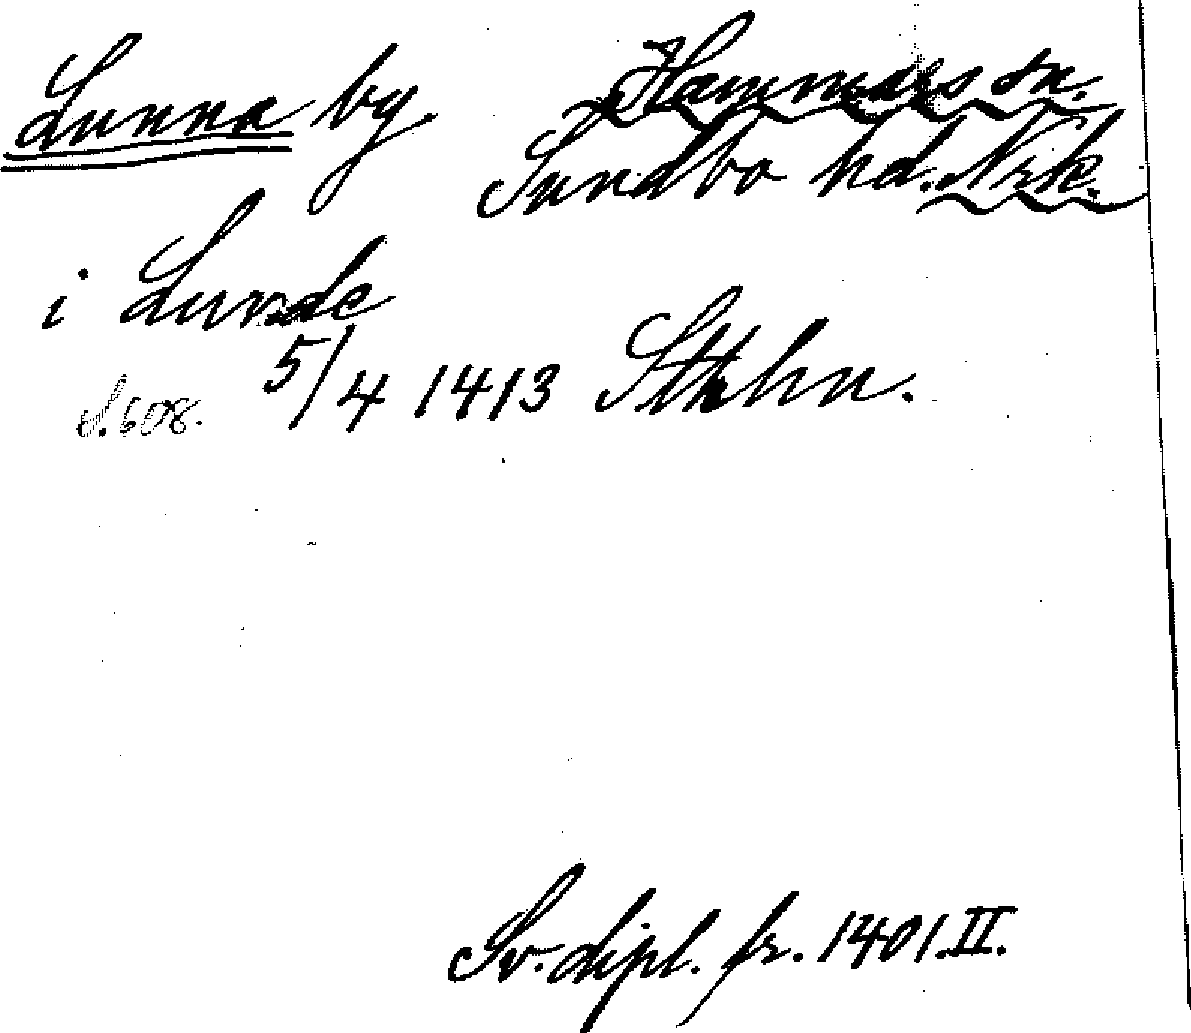 Lunna by. Hammars sn.
Sundbo hd. Nrk.
i Lunde
S. 608. 5/4 1413 Sthlm.
Sv. dipl. fr. 1401. II.